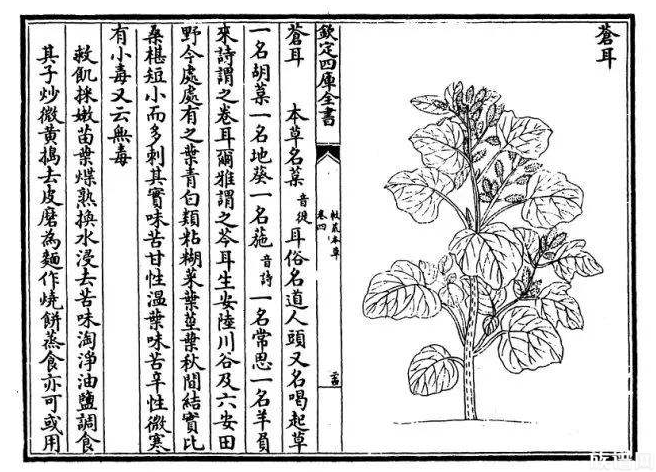 蒼耳
欽定四庫全書
救荒本草
卷四
蒼耳　本草名葈音徙耳俗名道人頭又名喝起草
一名胡葈一名地葵一名葹音詩一名常思一名羊負
來詩謂之卷耳爾雅謂之苓耳生安陸川谷及六安田
野今處處有之葉青白類粘糊菜葉莖葉秋間結實比
桑椹短小而多刺其實味苦甘性温葉味苦辛性微寒
有小毒又云無毒
救飢採嫩苗葉煠熟換水浸去苦味淘淨油鹽調食
其子炒微黄搗去皮磨為麵作燒餅蒸食亦可或用